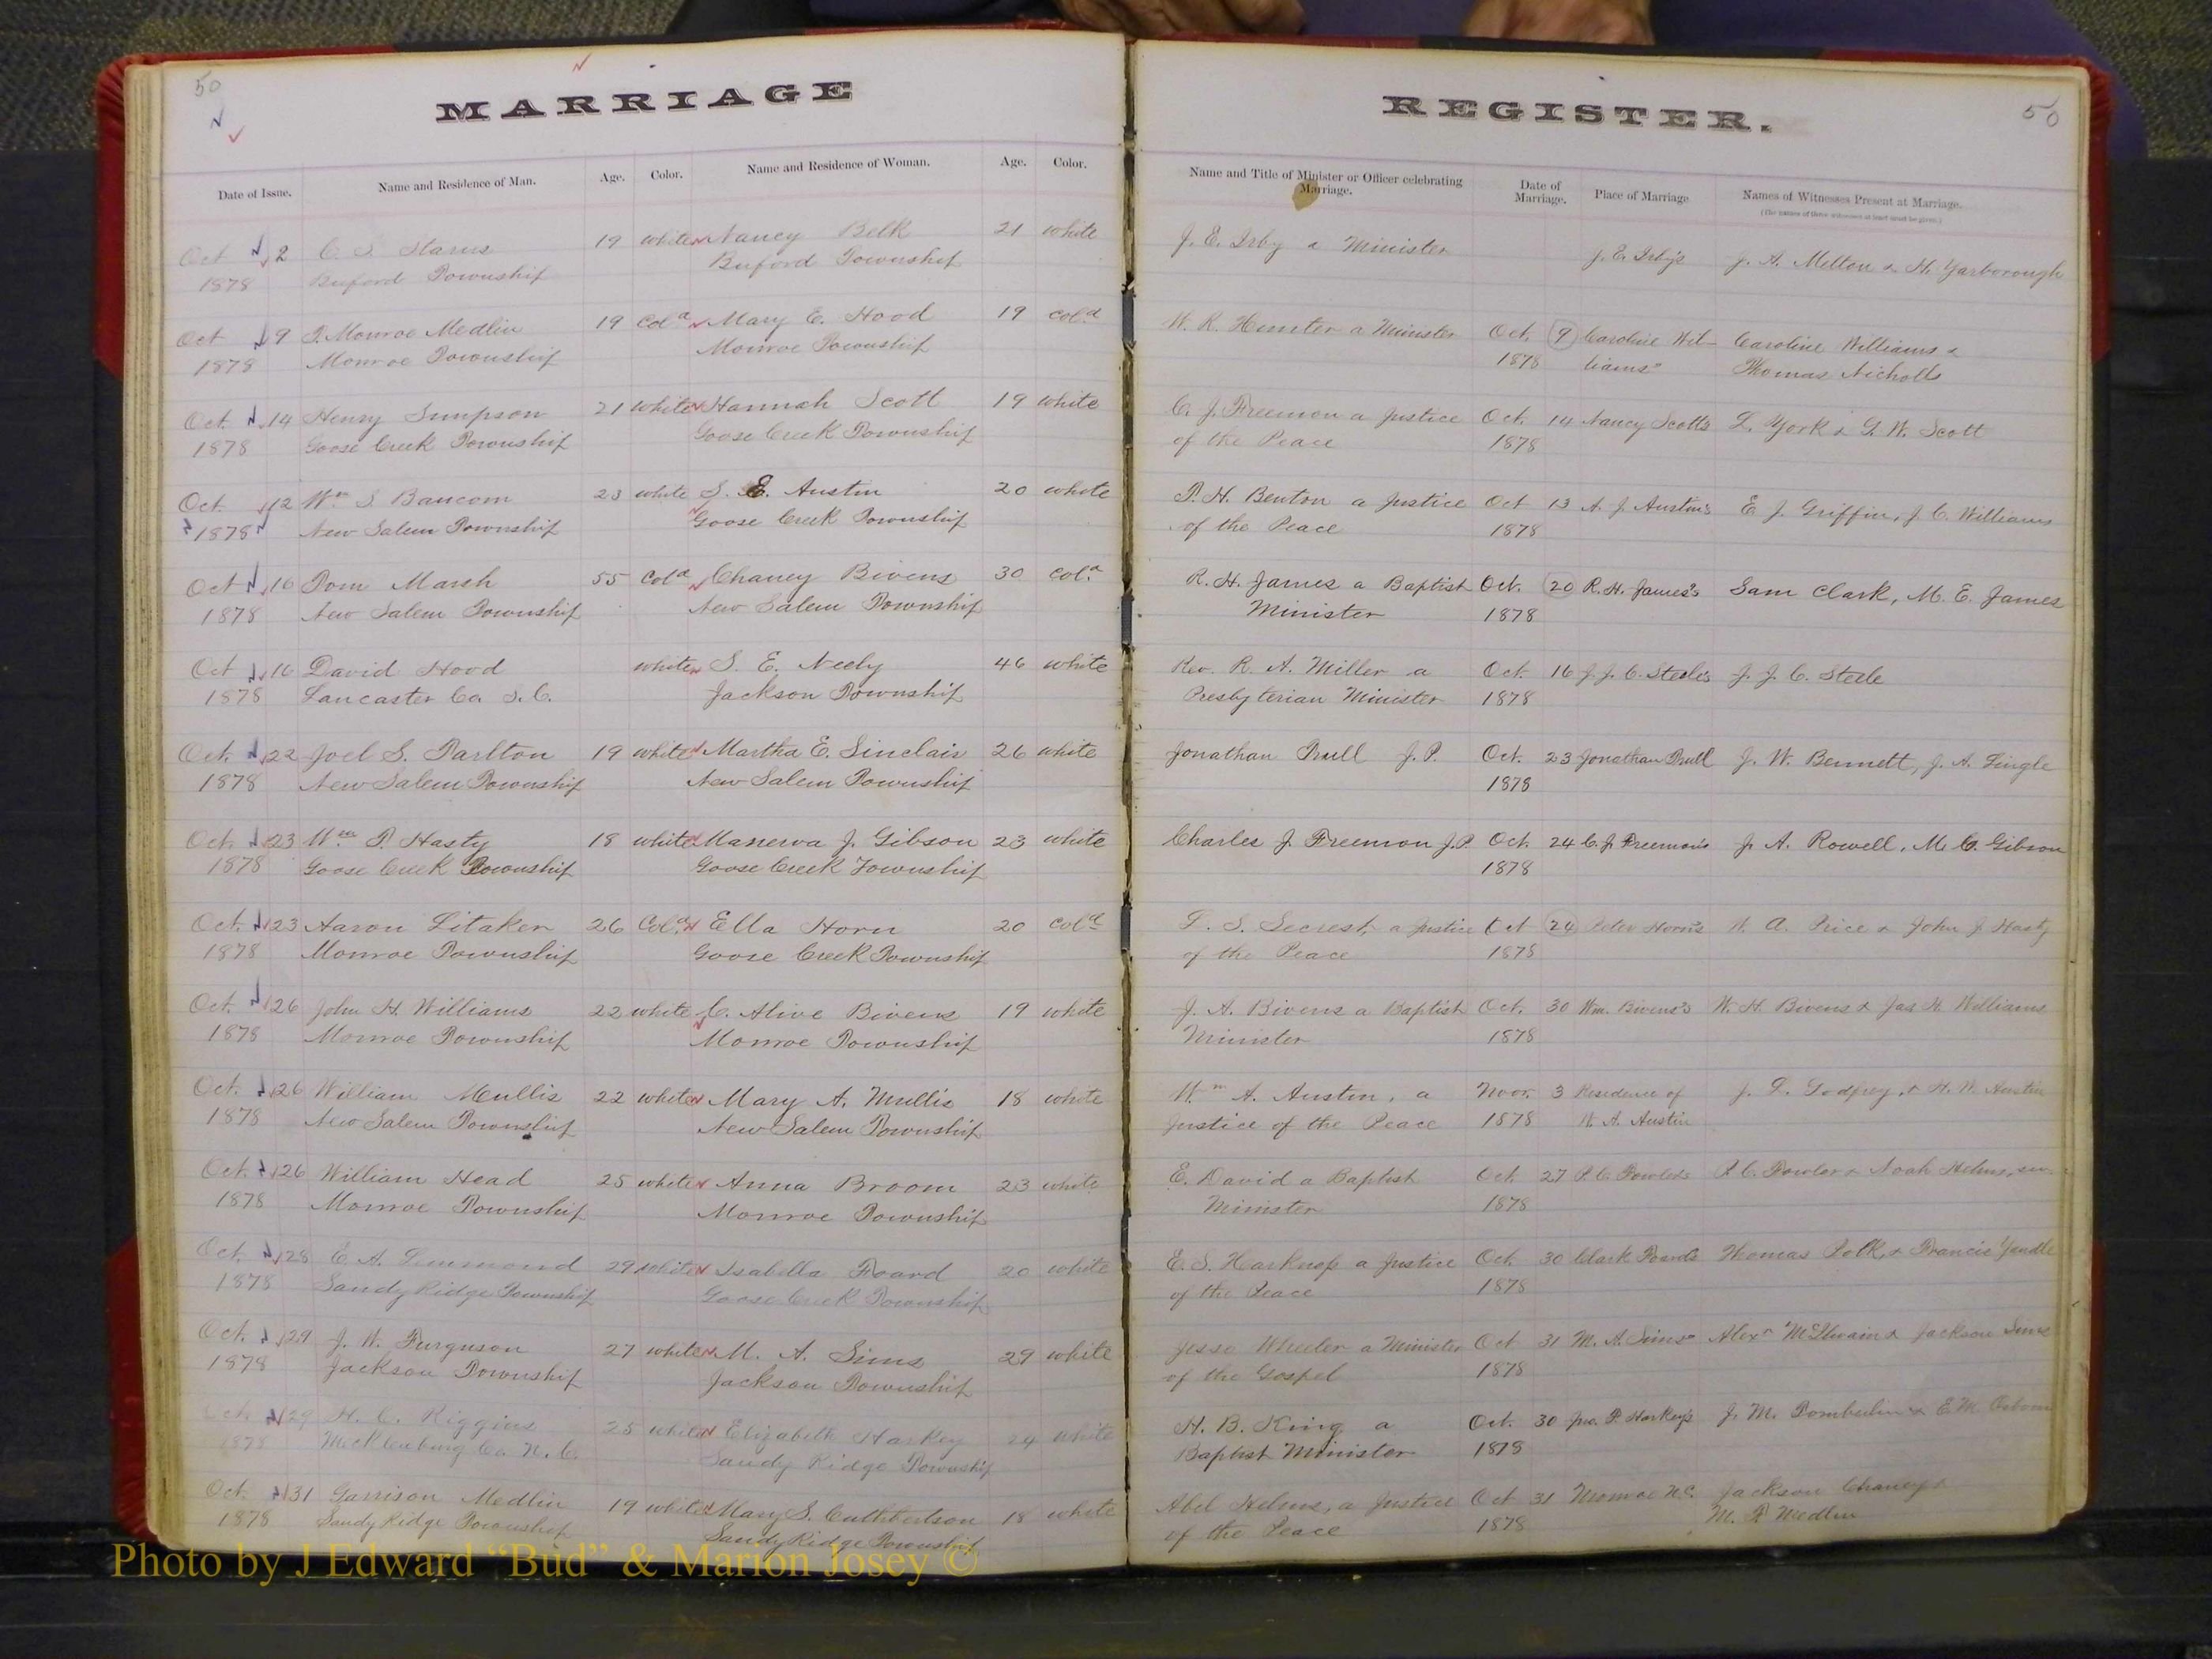 50
MARRIAGE
Date of Issue. Name and Residence of Man. Age. Color. Name and Residence of Woman. Age. Color.
Oct 2 C. S. Starns 19 white Nancy Belk 21 white
1878 Buford Township Buford Township
Oct 9 T. Monroe Medlin 19 Col^d Mary E. Hood 19 col^d
1878 Monroe Township Monroe Township
Oct. 14 Henry Simpson 21 white Hannah Scott 19 white
1878 Goose Creek Township Goose Creek Township
Oct. 12 W^m S. Baucom 23 white S. E. Austin 20 white
1878 New Salem Township Goose Creek Township
Oct 16 Tom Marsh 55 Col^d Chaney Bivens 30 col^d
1878 New Salem Township New Salem Township
Oct 16 David Hood white S. E. Neely 46 white
1878 Lancaster Co S. C. Jackson Township
Oct. 22 Joel S. Tarlton 19 white Martha E. Sinclair 26 white
1878 New Salem Township New Salem Township
Oct. 23 W^m T. Hasty 18 white Manerva J. Gibson 23 white
1878 Goose Creek Township Goose Creek Township
Oct. 23 Aaron Litaker 26 Col^d Ella Horn 20 col^d
1878 Monroe Township Goose Creek Township
Oct. 26 John H. Williams 22 white C. Alive Bivens 19 white
1878 Monroe Township Monroe Township
Oct. 26 William Mullis 22 white Mary A. Mullis 18 white
1878 New Salem Township New Salem Township
Oct. 26 William Head 25 white Anna Broom 23 white
1878 Monroe Township Monroe Township
Oct. 28 C. A. Lemmond 29 white Isabella Foard 20 white
1878 Sandy Ridge Township Goose Creek Township
Oct. 29 J. W. Furguson 27 white M. A. Sims 29 white
1878 Jackson Township Jackson Township
Oct. 29 H. C. Riggins 25 white Elizabeth Harkey 24 white
1878 Mecklenburg Co. N. C. Sandy Ridge Township
Oct. 31 Garrison Medlin 19 white Mary S. Cuthbertson 18 white
1878 Sandy Ridge Township Sandy Ridge Township
REGISTER.
50
Name and Title of Minister or Officer celebrating Marriage. Date of Marriage. Place of Marriage Names of Witnesses Present at Marriage.
J. E. Irby a Minister J. E. Irby's J. A. Melton & H. Yarborough
W. R. Hunter a Minister Oct. 9 Caroline Wil- Caroline Williams &
1878 liams" Thomas Nicholls
C. J. Freemon a Justice Oct. 14 Nancy Scott's L. York & G. W. Scott
of the Peace 1878
T. H. Benton a Justice Oct 13 A. J. Austin's E. J. Griffin, J. C. Williams
of the Peace 1878
R. H. James a Baptist Oct. 20 R. H. James's Sam Clark, M. E. James
Minister 1878
Rev. R. A. Miller a Oct. 16 J. J. C. Steele's J. J. C. Steele
Presbyterian Minister 1878
Jonathan Trull J. P. Oct. 23 Jonathan Trull J. W. Bennett, J. A. Lingle
1878
Charles J. Freemon J.P. Oct. 24 C. J. Freemon's J. A. Rowell, M. C. Gibson
1878
L. S. Secrest, a Justice Oct 24 Peter Horn's W. A. Price & John J. Hasty
of the Peace 1878
J. A. Bivens a Baptist Oct. 30 Wm. Bivens's W. H. Bivens & Jas H. Williams
Minister 1878
W^m A. Austin, a Nov. 3 Residence of J. L. Godfrey, & H. W. Austin
Justice of the Peace 1878 W. A. Austin
E. David a Baptist Oct. 27 P. C. Fowler's P. C. Fowler & Noah Helms,
Minister 1878
E. S. Harkness a Justice Oct. 30 Clark Foard's Thomas Polk, & Francis Yandle
of the Peace 1878
Jesse Wheeler a Minister Oct 31 M. A. Sims" Alex^r McIlwain & Jackson Sims
of the Gospel 1878
H. B. King a Oct. 30 Jno. P. Harkey's J. M. Tomberlin & E. M. Osborn
Baptist Minister 1878
Abel Helms, a Justice Oct 31 Monroe N.C. Jackson Chaney &
of the Peace 1878 M. P. Medlin
Photo by J Edward “Bud” & Marion Josey ©